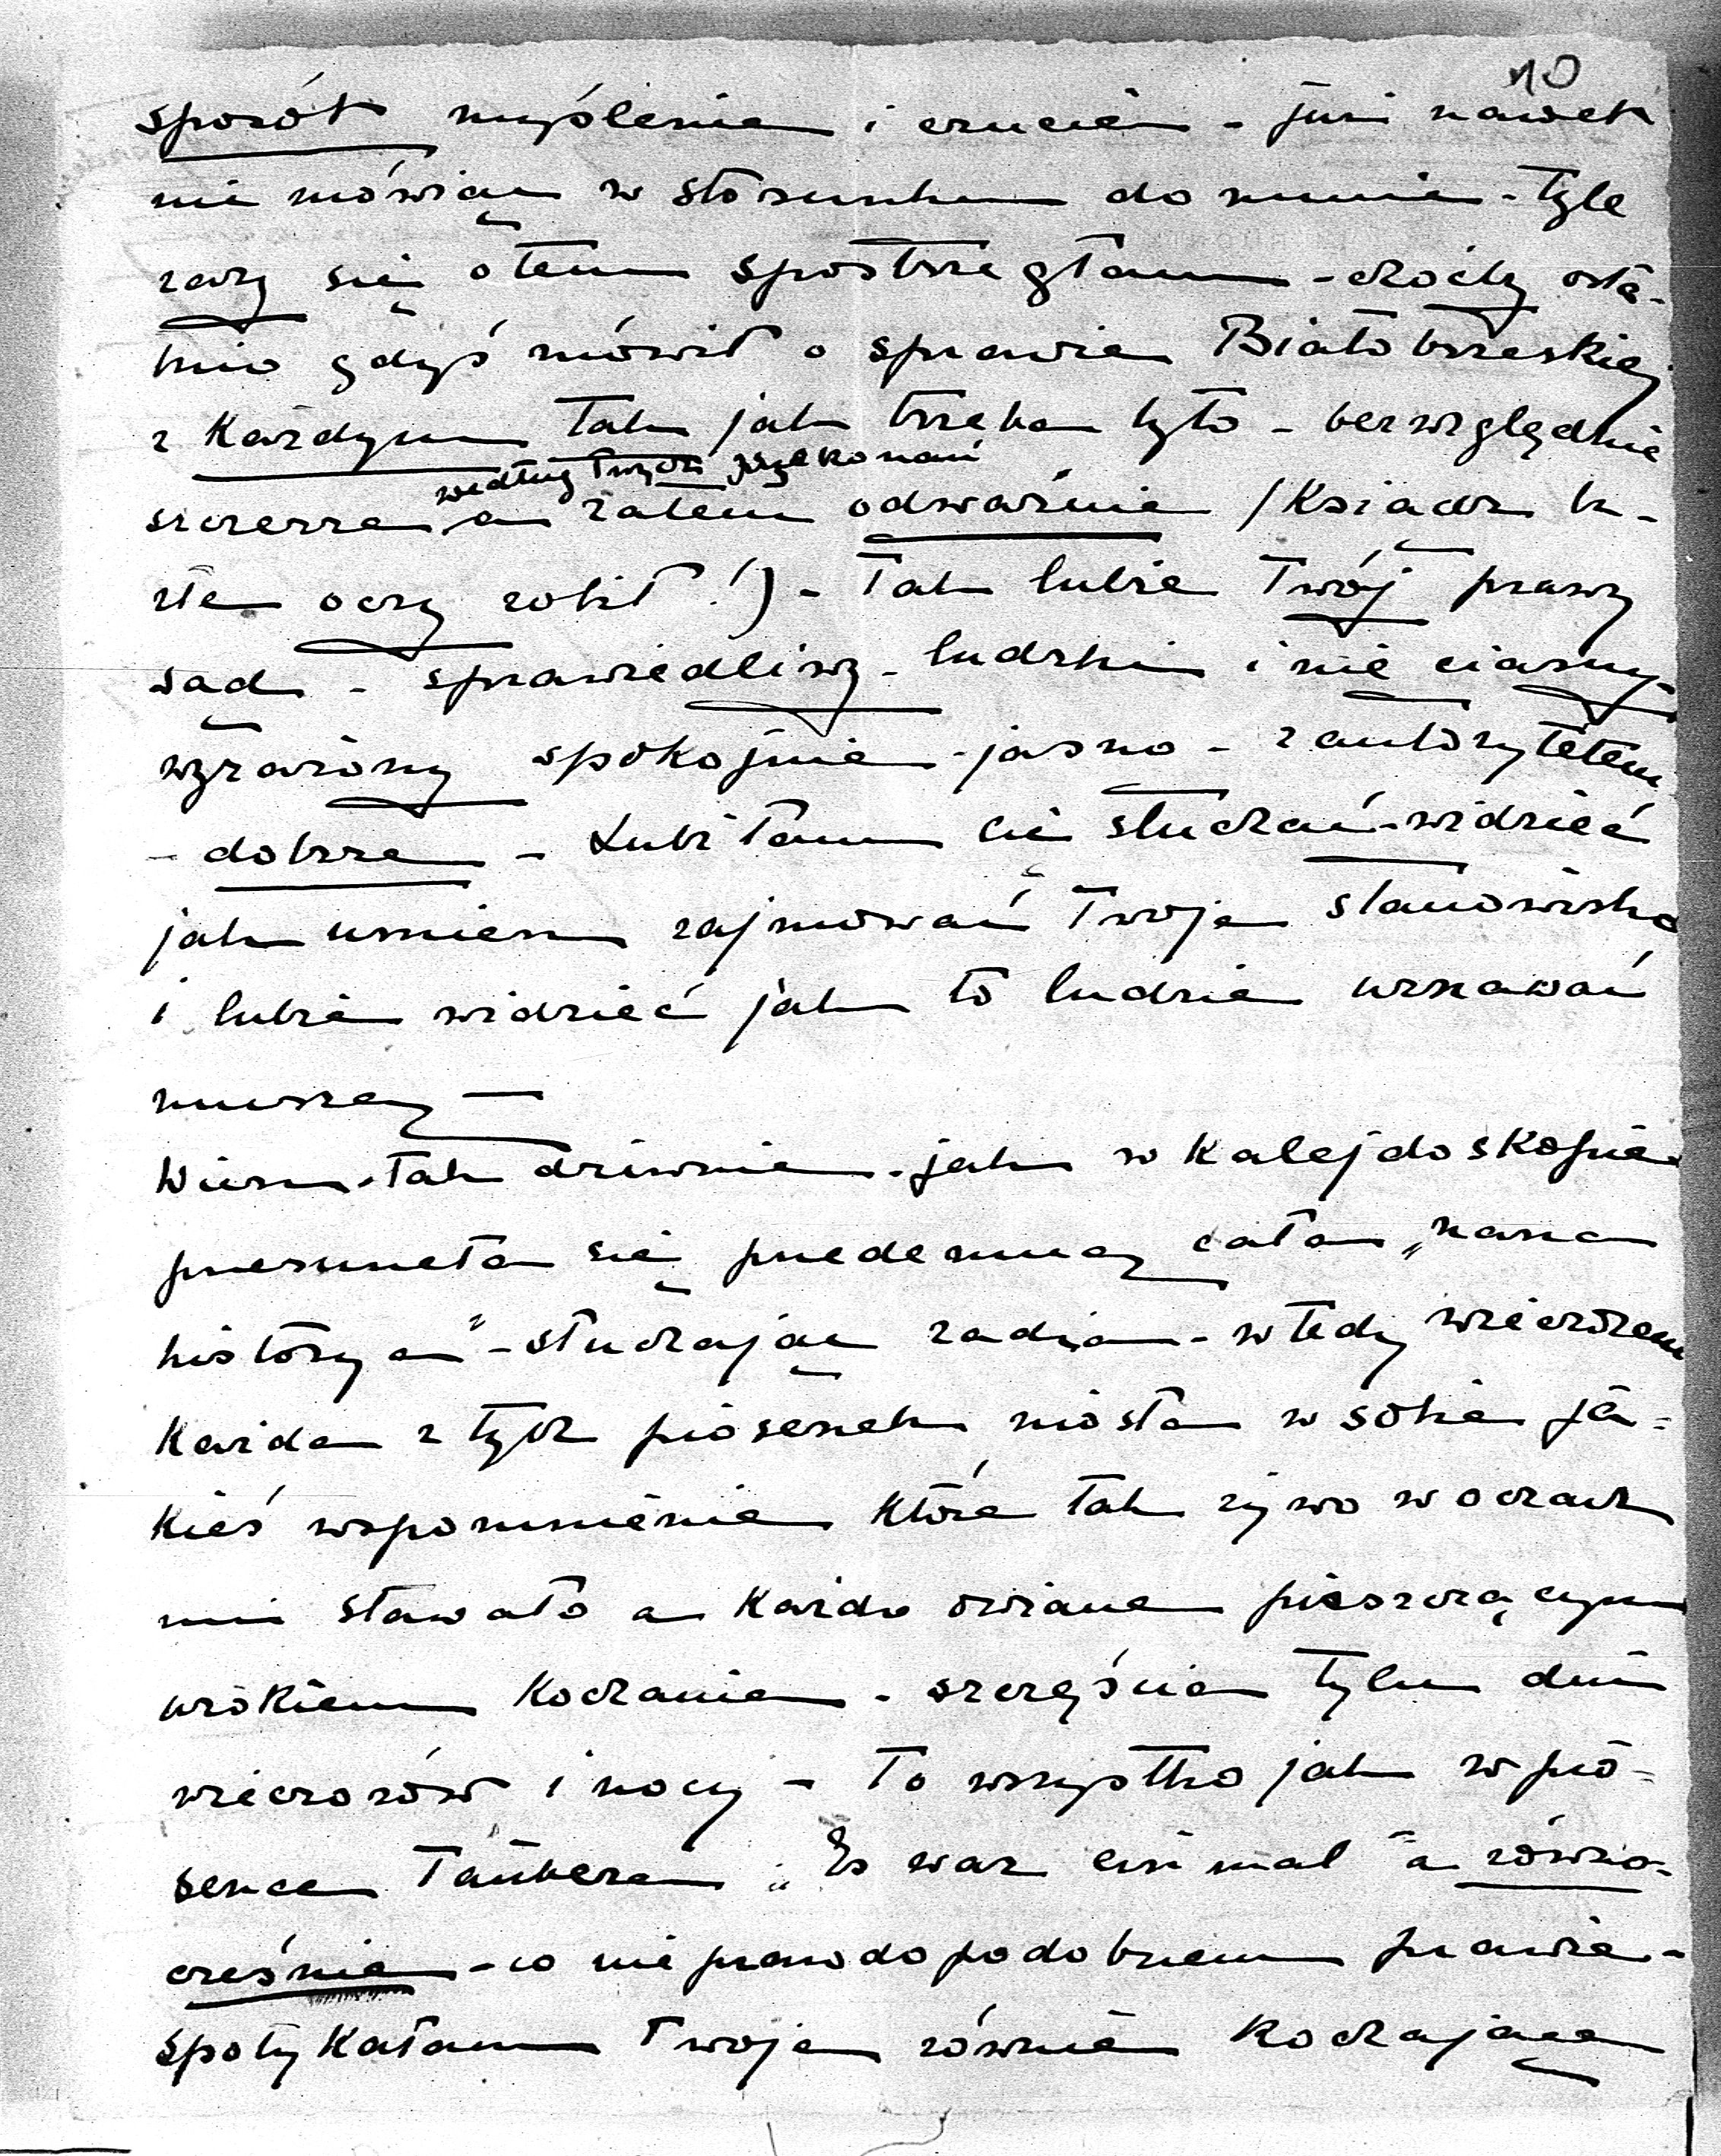 10
sposób myślenia i czucia - już nawet
nie mówiąc w stosunku do mnie - tyle
razy się o tem spostrzegłam - choćby osta-
tnio gdyś mówił o sprawie Białobrzeskiej
z każdym tak jak trzeba było - bezwzględnie
według Twych przekonań
szczerze, a zatem odważnie /Ksiądz
złe oczy robił!) - Tak lubię Twój prawy
sąd - sprawiedliwy - ludzki i nie ciasny -
wyrażony spokojnie - jasno - z autorytetem
- dobrze - Lubiłam cię słuchać - widzieć
jak umiesz zajmować Twoje stanowisko
i lubię widzieć jak to ludzie uznawać
muszą —
Wiesz - tak dziwnie - jak w kalejdoskopie
przesunęła się przedemną cała „nasza
historya" - słuchając radja - wtedy wieczorem
Każda z tych piosenek niosła w sobie ja-
kieś wspomnienie które tak żywo w oczach
mi stawało a każde owiane pieszczącym
urokiem kochania - szczęścia tylu dni
wieczorów i nocy - To wszystko jak w pio-
sence Taubera „Es war einmal" a równo-
cześnie - co nieprawdopodobnem prawie -
spotykałam Twoje równie kochające